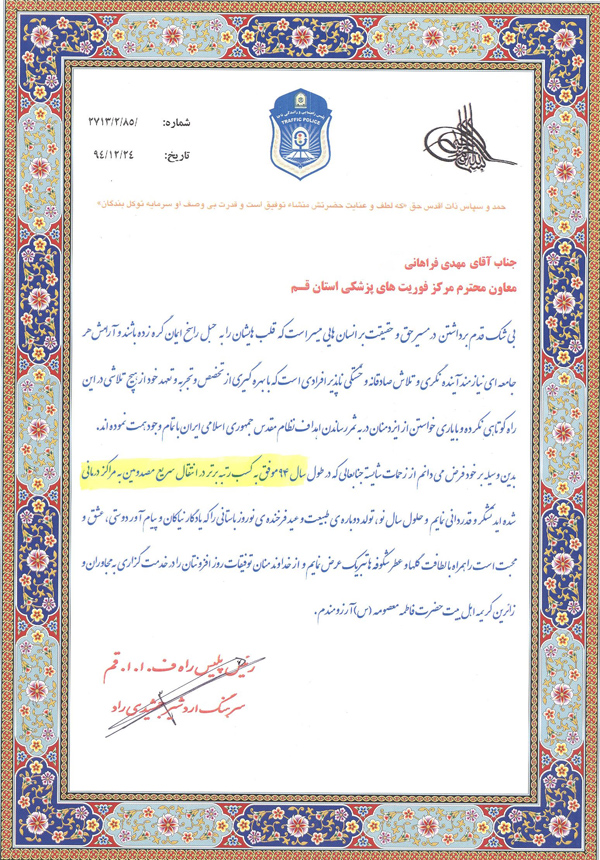 شماره: ۲۷۱۳/۲/۸۵/
تاریخ: ۹۴/۱۲/۲۴
پلیس راهنمایی و رانندگی ناجا
TRAFFIC POLICE
حمد و سپاس ذات اقدس حق «که لطف و عنایت حضرتش منشاء توفیق است و قدرت بی وصف او سرمایه توکل بندگان»
جناب آقای مهدی فراهانی
معاون محترم مرکز فوریت های پزشکی استان قـم
بی شک قدم برداشتن در مسیر حق و حقیقت بر انسان هایی میسر است که قلب هایشان را به حبل راسخ ایمان گره زده باشند و آرامش هر
جامعه ای نیازمند آینده نگری و تلاش صادقانه و خستگی ناپذیر افرادی است که با بهره گیری از تخصص و تجربه و تعهد خود از هیچ تلاشی در این
راه کوتاهی نکرده و با یاری خواستن از ایزد منان در به ثمر رساندن اهداف نظام مقدس جمهوری اسلامی ایران با تمام وجود همت نموده اند.
بدین وسیله بر خود فرض می دانم از زحمات شایسته جنابعالی که در طول سال ۹۴ موفق به کسب رتبه برتر در انتقال سریع مصدومین به مراکز درمانی
شده اید تشکر و قدردانی نمایم و حلول سال نو، تولد دوباره ی طبیعت و عید فرخنده ی نوروز باستانی را که یادگار نیاکان و پیام آور دوستی، عشق و
محبت است را همراه با لطافت گلها و عطر شکوفه ها تبریک عرض نمایم و از خداوند منان توفیقات روز افزونتان را در خدمت گزاری به مجاوران و
زائرین کریمه اهل بیت حضرت فاطمه معصومه (س) آرزومندم.
رئیس پلیس راه ف.ا.ا. قم
سرهنگ اردشیر جمشیدی راد